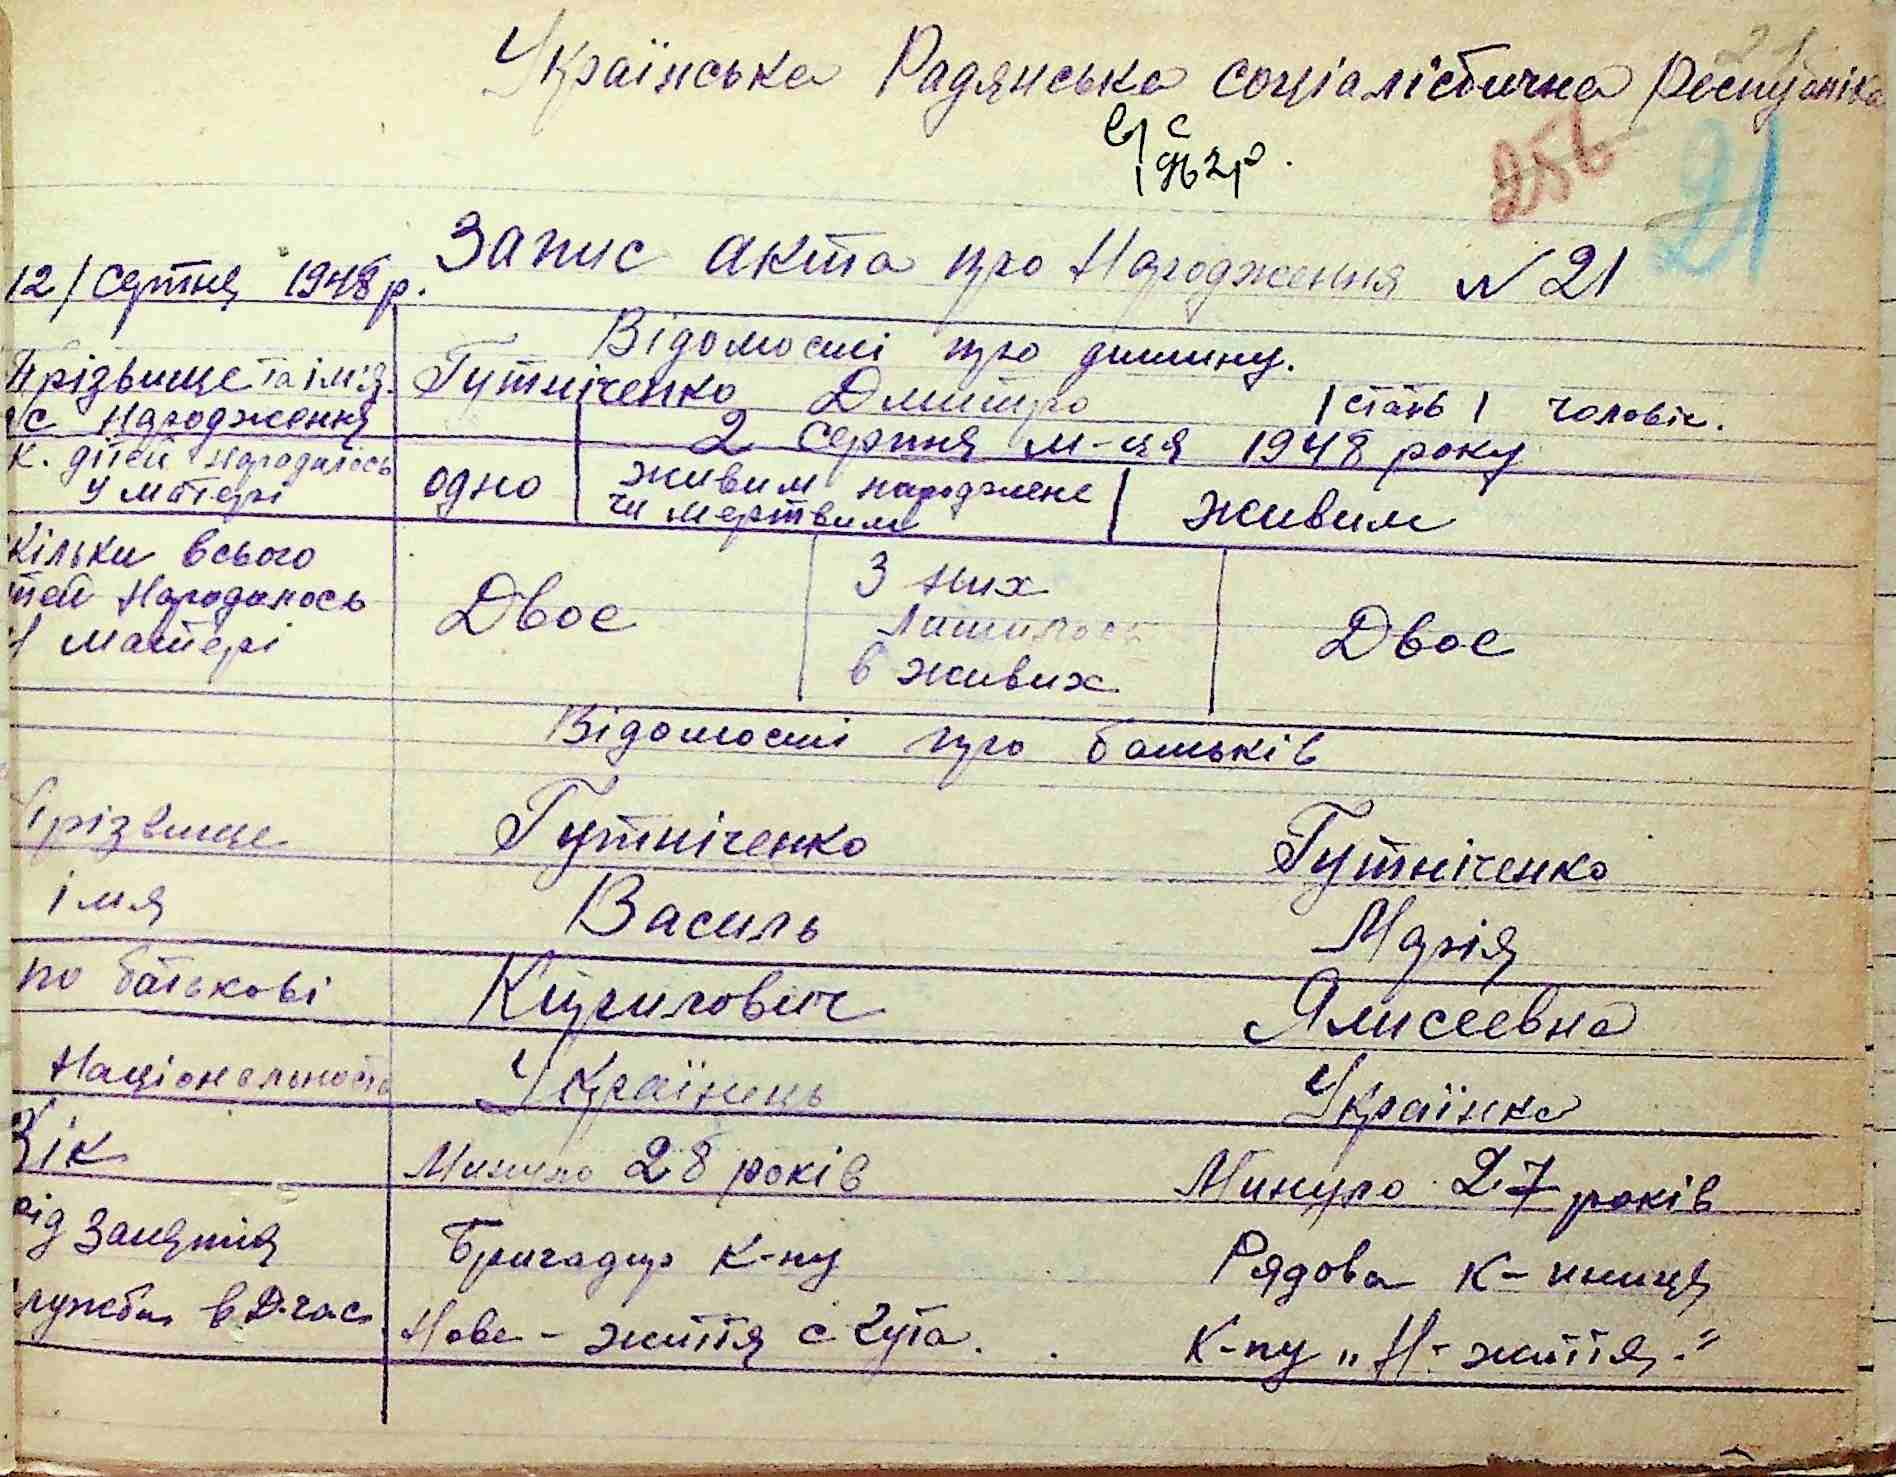 Українська Радянська соціалістична Республіка
21
256
21
Запис акта про Народження N 21
12/ Серпня 1948 р.
Відомості про дитину.
Прізвище та ім'я. Гутніченко Дмитро | стать | чоловіч.
с Народження 2 серпня м-ця 1948 року
к. дітей народилось у матері одно живим народжене чи мертвим живим
кільки всього тей Народилось у матері Двоє З них лишилось в живих Двоє
Відомості про батьків
Прізвище Гутніченко Гутніченко
імя Василь Марія
по батькові Кирилович Ялисеевна
Національність Українець Українка
Вік Минуло 28 років Минуло 27 років
рід Заняття Бригадир к-пу Рядова к-пниця
служба в д. час Нове - життя с Чута. К-пу „Н-життя."